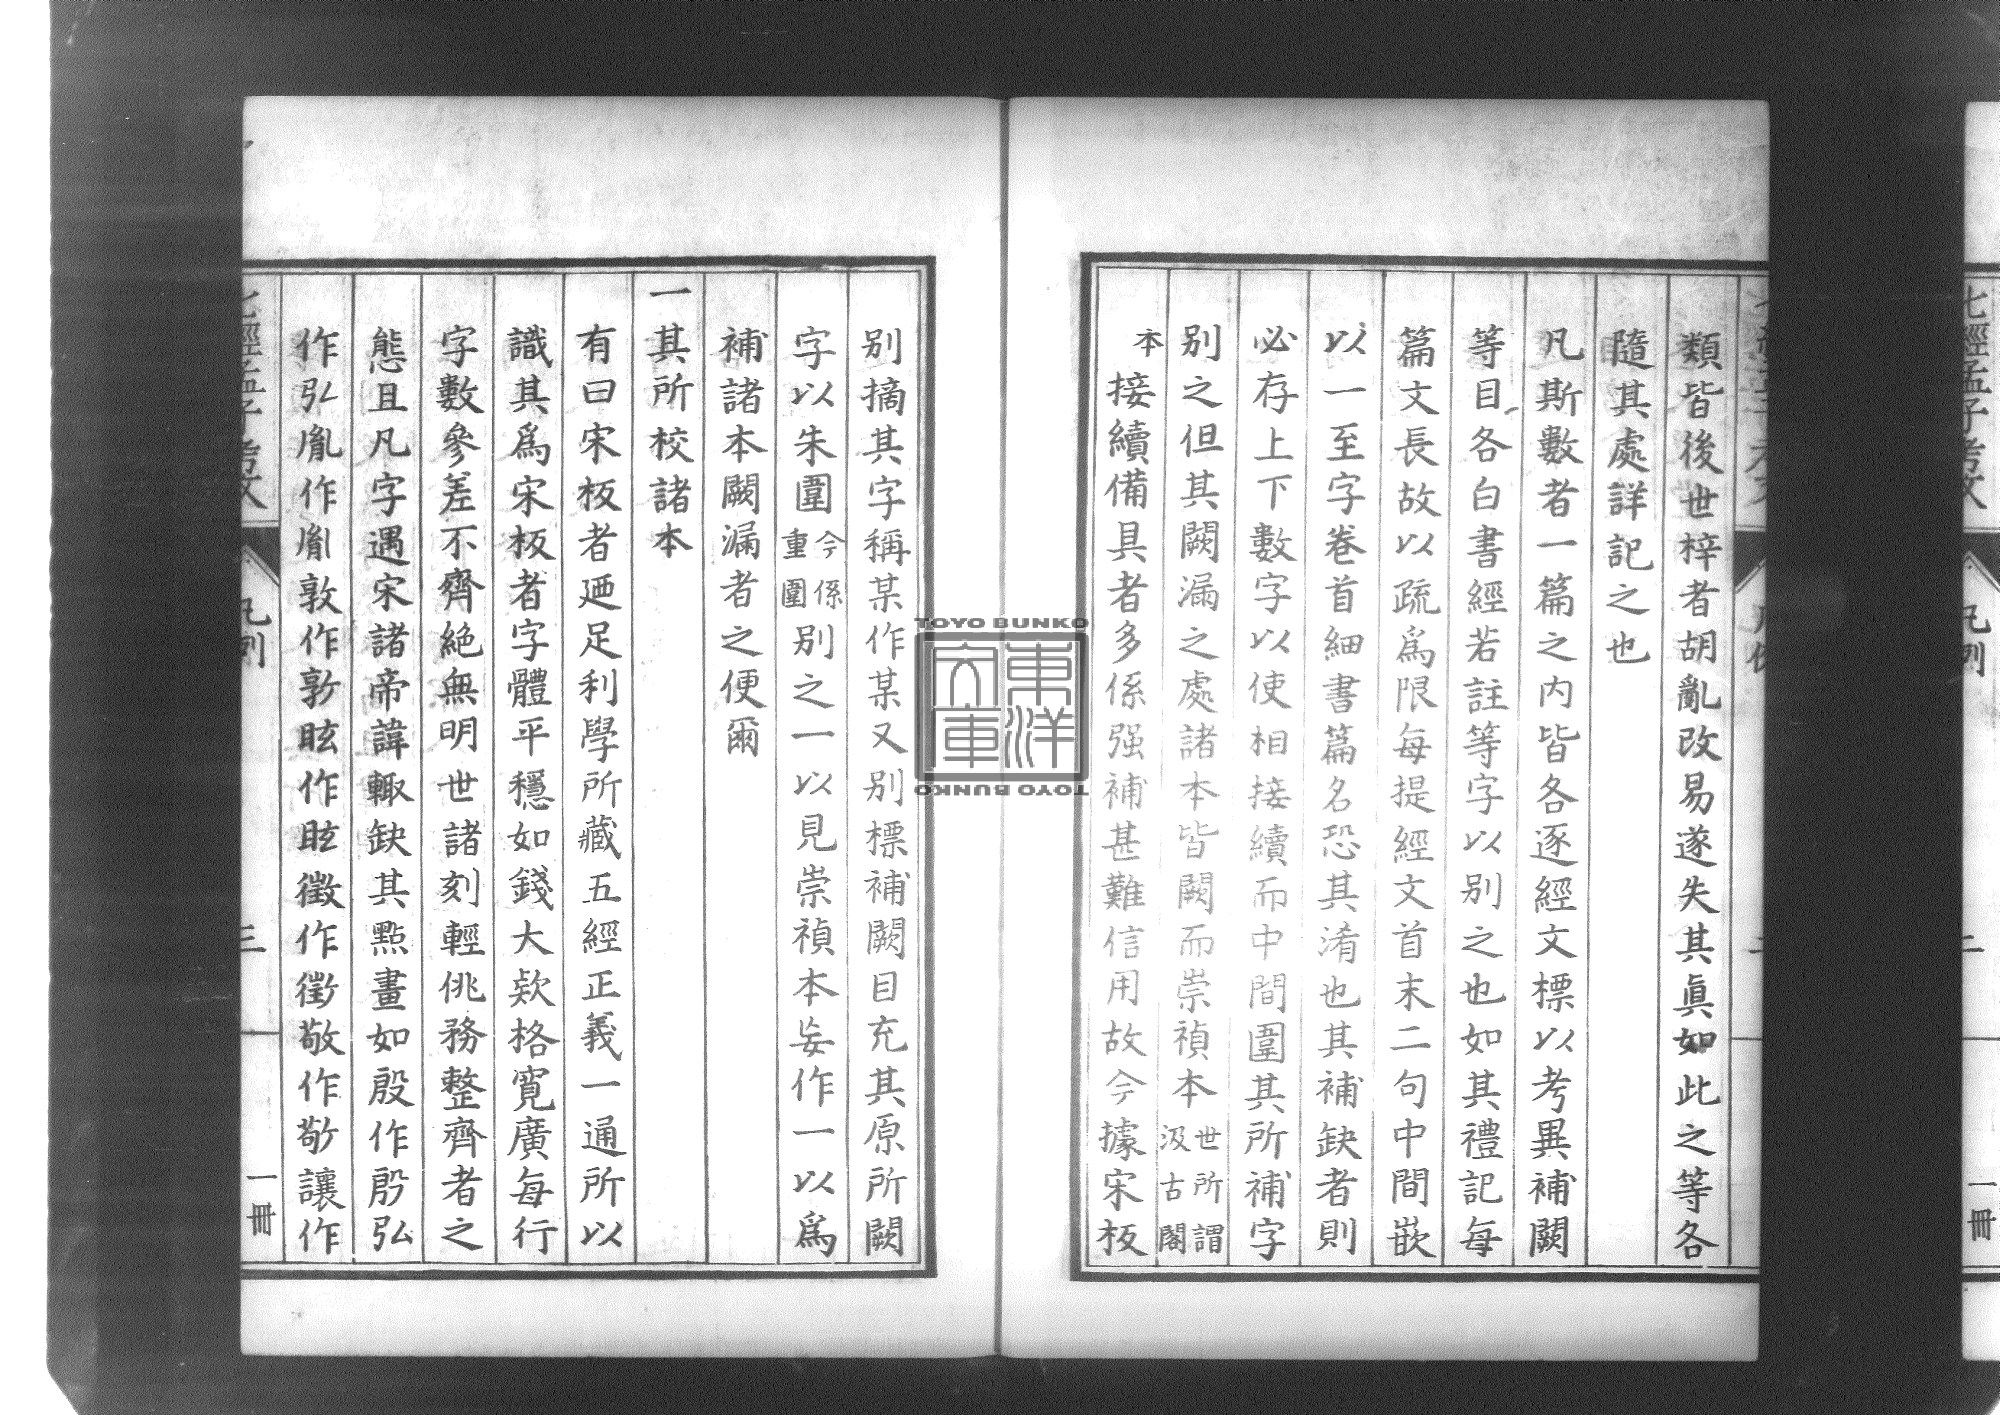 類皆後世梓者胡亂改易遂失其眞如此之等各
隨其處詳記之也
凡斯數者一篇之内皆各逐經文標以考異補闕
等目各白書經若註等字以別之也如其禮記每
篇文長故以疏爲限每提經文首末二句中間嵌
以一至字卷首細書篇名恐其淆也其補缺者則
必存上下數字以使相接續而中間圍其所補字
别之但其闕漏之處諸本皆闕而崇禎本世所謂汲古閣
本接續備具者多係强補甚難信用故今據宋板
别摘其字稱某作某又别標補闕目充其原所闕
字以朱圍今係重圍别之一以見崇禎本妄作一以爲
補諸本闕漏者之便爾
一其所校諸本
有曰宋板者廼足利學所藏五經正義一通所以
識其爲宋板者字體平穩如錢大款格寛廣每行
字數參差不齊絶無明世諸刻輕佻務整齊者之
態且凡字遇宋諸帝諱輙缺其點畫如殷作𣪞弘
作弘胤作胤敦作敦眩作眩徴作徴敬作敬讓作
七經孟子考文
凡例
三
一冊
TOYO BUNKO
東洋文庫
TOYO BUNKO
七經孟子考文
凡例
二
一冊